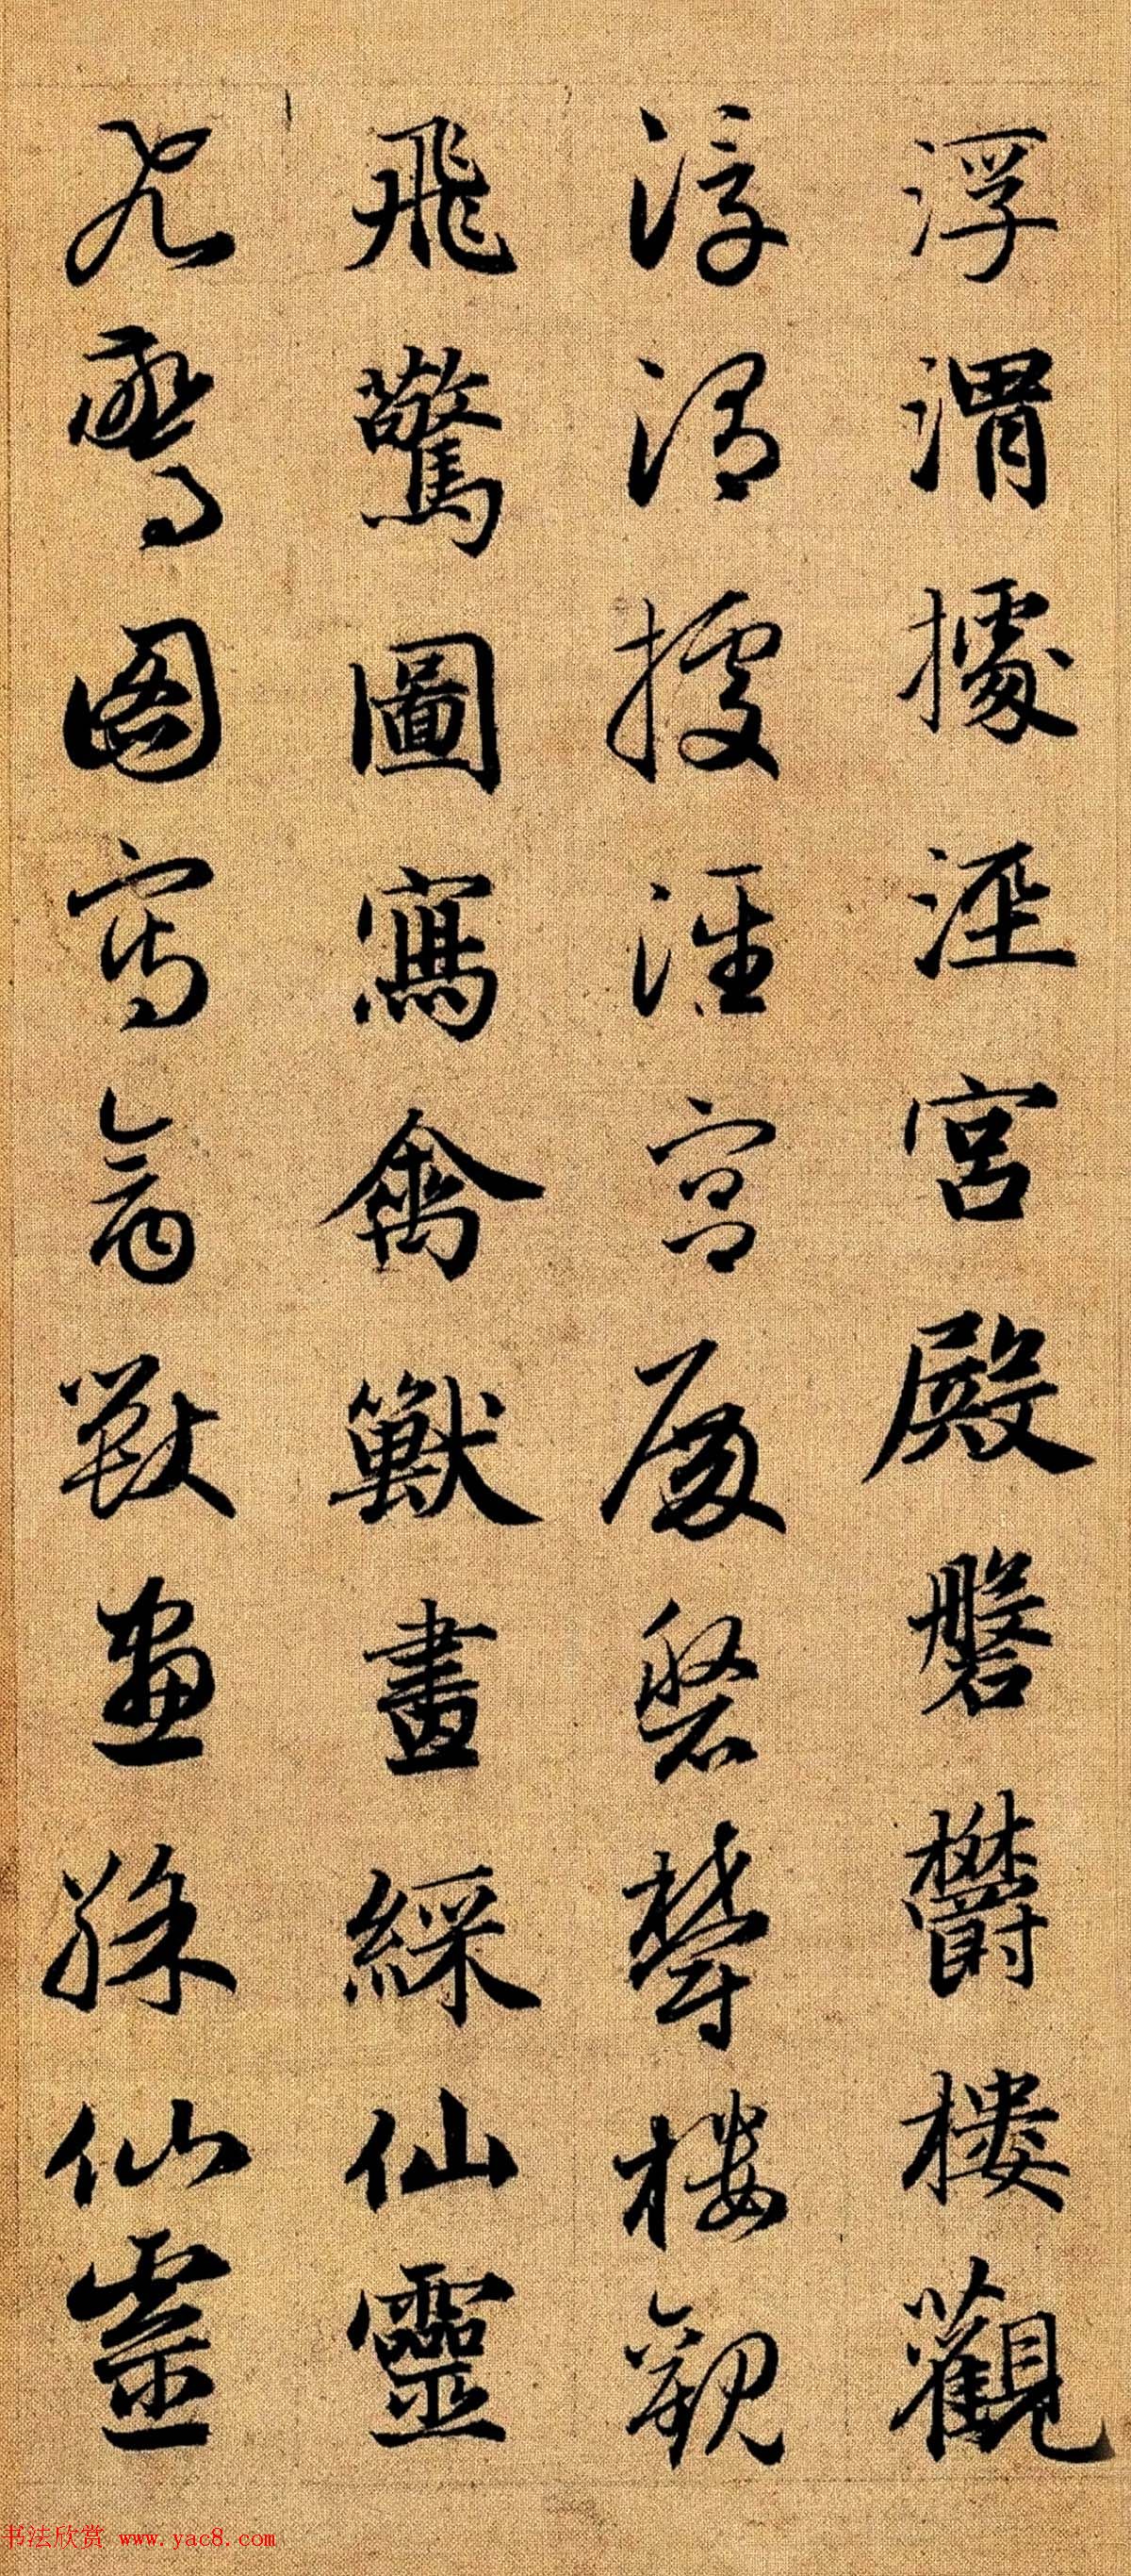 浮渭據涇宮殿磐欝樓觀
浮渭據涇宮殿磐欝樓觀
飛驚圖寫禽獸畫綵仙靈
飛驚圖寫禽獸畫綵仙靈
书法欣赏 www.yac8.com